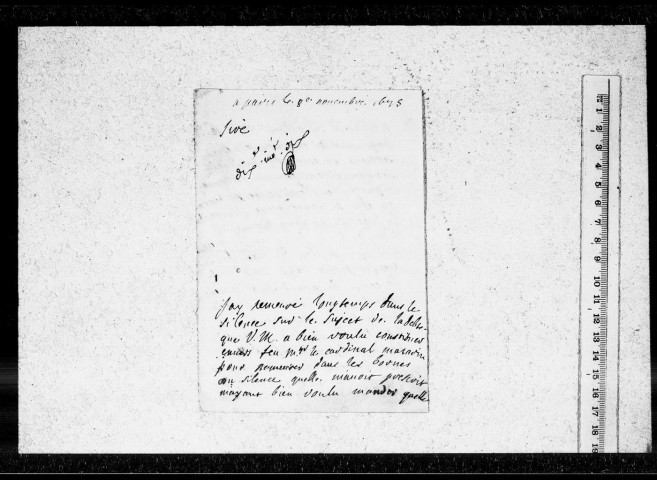 a paris le 8e novembre 1675
Sire
Jay demeuré longtemps dans le
silence sur le sujet de la
que V.M. a bien voulu
feu mr le cardinal mazarin
pour demeurer dans les bornes
du silence quelle mavoit prescrit
mayant bien voulu mander quelle
1 2 3 4 5 6 7 8 9 10 11 12 13 14 15 16 17 18 19